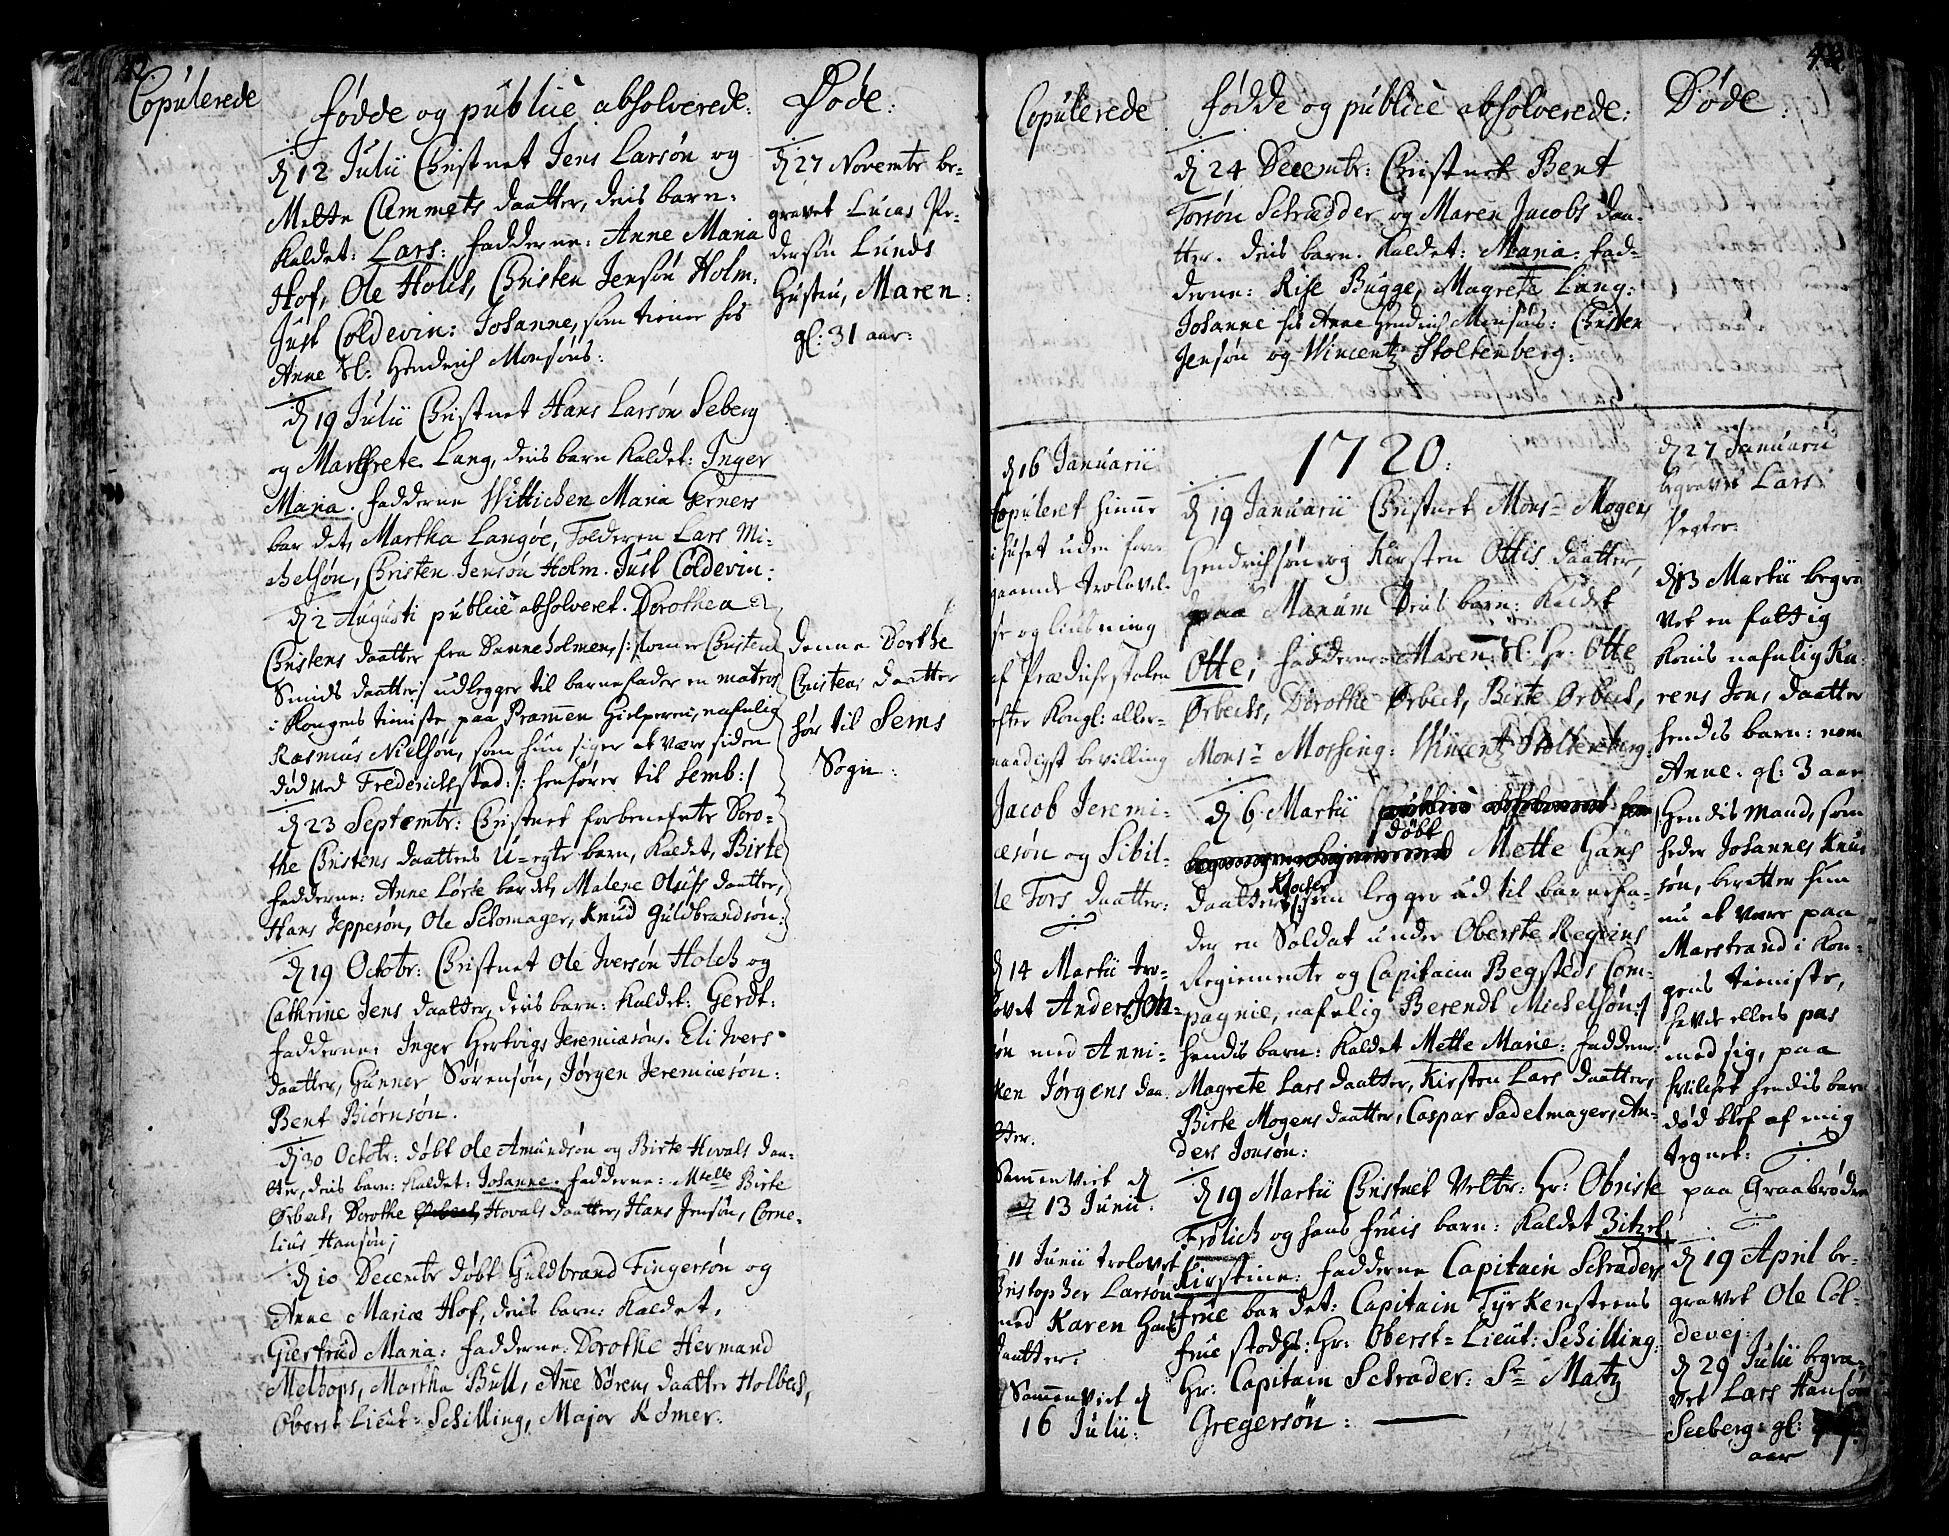 42.
Copulerede
fødde og publicè absolverede:
Døde:
d 12 Julii Christnet Jens Larsøn og
Mette Clemmets daatter, deris barn.
kaldet: Lars: fadderne: Anne Maria
Hof, Ole Holch, Christen Jensøn Holm.
Just Coldevin: Johanne, som tiener hos
Anne Sl: Hendrich Monsøns:
d 19 Julii Christnet Hans Larsøn Seberg
og Margrete Lang, deris barn kaldet: Inger
Maria. fadderne Wittichen Maria Gerners
bar det, Martha Langøe, Tolderen Lars Mi-
chelsøn, Christen Jensøn Holm. Just Coldevin:
d 2 Augusti publicè absolveret. Dorothea
Christens daatter fra Danneholmen, /: som er Christen
Smids daatter:/ udlegger til barnefader en matros
i Kongens tieniste paa Prammen Hielperen, nafnlig
Rasmus Nielsøn, som hun siger at være siden
død ved Frederichstad: /: henhører til Semb:/
d 23 Septembr: Christnet forbenefnte Doro-
the Christens daatters U-egte barn, kaldet, Birte
fadderne: Anne Lørte bar det, Malene Olufs daatter,
Hans Jeppesøn, Ole Schomager, Knud Guldbrandsøn:
d 19 Octobr: Christnet Ole Iversøn Holch og
Cathrine Jens daatter, deris barn: kaldet: Gerdt:
fadderne: Inger Hertvigs Jeremiæsøns. Eli Ivers
daatter, Gunner Sørensøn, Jørgen Jeremiæsøn:
Bent Biørnsøn.
d 30 Octobr: døbt Ole Amundsøn og Birte Hovals daa-
tter, deris barn: kaldet: Johanne. fadderne: Mselle Birte
Ørbech, Dorothe Ørbech, Hovals daatter, Hans Jensøn, Corne-
lius Hansøn;
d 10 Decembr døbt Guldbrand Fingersøn og
Anne Maria Hof, deris barn: kaldet,
Giertrud Maria: fadderne: Dorothe Hermand
Melhops, Martha Bull, Anne Sørens daatter Holbech,
Oberst Lieut: Schilling, Major Kømer.
d 27 Novembr be-
gravet Lucas Pe-
dersøn Lunds
Hustru, Maren
gl: 31 aar:
denne Dorthe
Christens daatter
hør til Sems
Sogn:
43
Copulerede
fødde og publicè absolverede:
Døde:
d 24 Decembr: Christnet Bent
Torsøn Schredder og Maren Jacobs daa-
tter. deris barn. kaldet: Maria: fad-
derne: Rise Bugge, Magrete Lang:
Johanne hos Anne Hendrich Monsøns: Christen
Jensøn og Wincentz Stoltenberg:
1720:
d 16 Januarii
Copuleret hiemme
i huset uden fore-
gaaende trolovel-
se og liusning
af Prædichestolen
efter Kongl: aller-
naadigst bevilling
Jacob Jeremi-
æsøn og Sibil-
le Tors daatter:
d 14 Martii tro-
lovet Anders Jon-
søn med Anni-
ken Jørgens daa-
tter.
Sammenviet d
13 Junii.
11 Junii trolovet
Christopher Larsøn
med Karen Hans
daatter:
Sammenviet d
16 Julii:
d 19 Januarii Christnet Mons- Mogens
Hendrichsøn og Kirsten Ottis daatter,
paa Manum deris barn: kaldet
Otte; fadderne: Maren Sl: Hr: Otte
Ørbechs, Dorothe Ørbech, Birte Ørbech,
Monsr Mossing: Wincentz Stoltenberg:
d 6 Martii
døbt
Mette Hans
daatters
som legger ud til barnefa-
der en Soldat under Oberste
Regiemente og Capitain Begsteds Com-
pagnie, nafnlig Berendt Michelsøn:/
hendis barn: kaldet Mette Marie: faddere:
Magrete Lars daatter, Kirsten Lars daatter,
Birte Mogens daatter, Caspar Sadelmager, An-
ders Jonsøn:
d 19 Martii Christnet Velbr: Hr: Obriste
Frølich og hans fruis barn: kaldet Zitzel
Kirstine: fadderne Capitain Schraders
frue bar det: Capitain Tyrkensteens
frue stod hos: Hr: Oberst- Lieut: Schilling:
Hr: Capitain Schrader: Sr Matz
Gregersøn:
d 27 Januarii
begravet Lars
Vegter:
d 13 Martii begra-
vet en fattig
Konis nafnlig Ka-
rens Jons daatter
hendis barn: nom
Anne. gl: 3 aar
Hendis Mand, som
heder Johannes Knud-
søn, beretter hun
nu at være paa
Marstrand i Kon-
gens tieniste,
havde ellers pas
med sig, paa
hvilchet hendis barns
død blef af mig
tegnet:
paa Graabrødre
d 19 April be-
gravet Ole Col-
devej:
d 29 Julii begra-
vet Lars Hansøn
Seeberg: gl:
aar